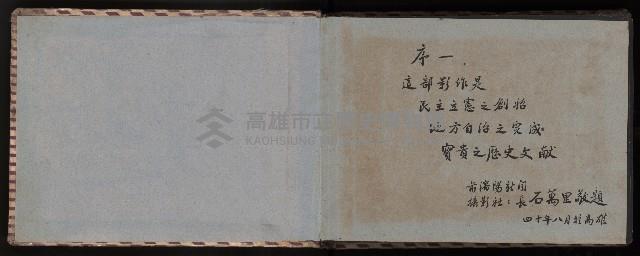 序一.
這部影作是
民主立憲之創始
地方自治之完成
寶貴之歷史文献
前瀋陽新聞
攝影社社長石萬里敬題
四十年八月於高雄
高雄市立
KAOHSIUNG